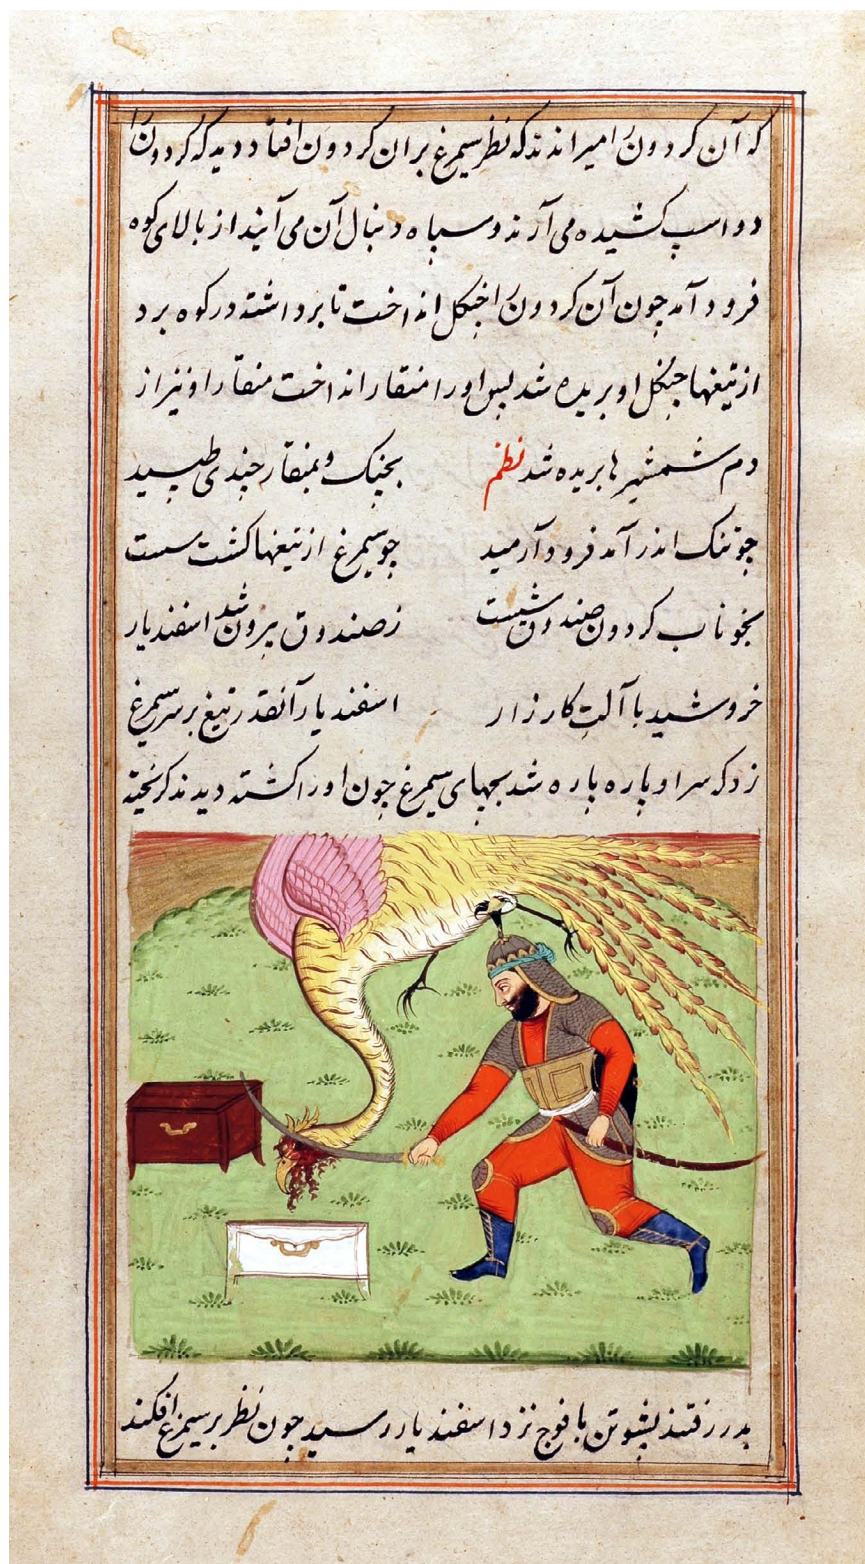 که آن کردون را میراندند که نظر سیمرغ بران کردون افتاد دید که کردون را
دو اسپ کشیده می آرند و سپاه دنبال آن می آیند از بالای کوه
فرود آمد چون آن کردون را چنکل انداخت تا برداشته در کوه برد
از تیغها چنکل او بریده شد پس او را منقار انداخت منقار او نیز از
دم شمشیرها بریده شد نظم بچنک و بمنقار چندی طپید
چو تنک اندر آمد فرود آرمید چو سیمرغ از تیغها کشت سست
بخوناب کردون صندوق شست ز صندوق بیرون شد اسفندیار
خروشید با آلت کارزار اسفندیار آنقدر تیغ بر سر سیمرغ
زد که سر او پاره پاره شد بچهای سیمرغ چون او را کشته دیدند کریخته
بدر رفتند پشوتن با فوج نزد اسفندیار رسید چون نظر بر سیمرغ افکند